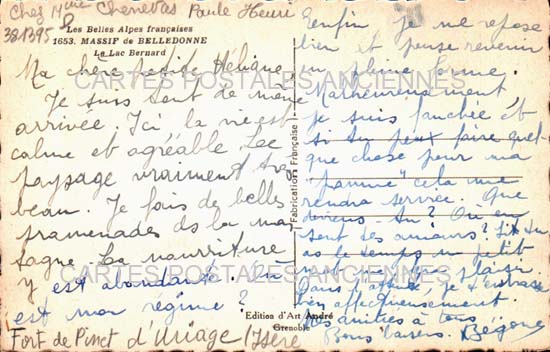 Chez Mme Chenevas Paule Henri
381395
Les Belles Alpes françaises
1653. MASSIF de BELLEDONNE
Le Lac Bernard
Ma chère petite
Je suis tout de même
arrivée. Ici la vie est
calme et agréable Le
paysage vraiment très
beau. Je fais de belles
promenades ds la mon
tagne. La nourriture
y est abondante. Où
est mon régime ?
Fort de Pinet d'Uriage (Isère
Enfin je me repose
bien et pense revenir
en pleine forme.
Malheureusement
je suis fauchée et
si tu peux faire quel-
que chose pour ma
"panne" cela me
rendra service. Que
deviens-tu ? Où en
sont les amours ? Si tu
as le temps un petit
plaisir.
Dans l'attente, je t'embrasse
bien affectueusement.
Mes amitiés à tous
Bons baisers.
Fabrication Française
Edition d'Art André
Grenoble
CARTES POSTALES ANCIENNES
CARTES POSTALES ANCIENNES